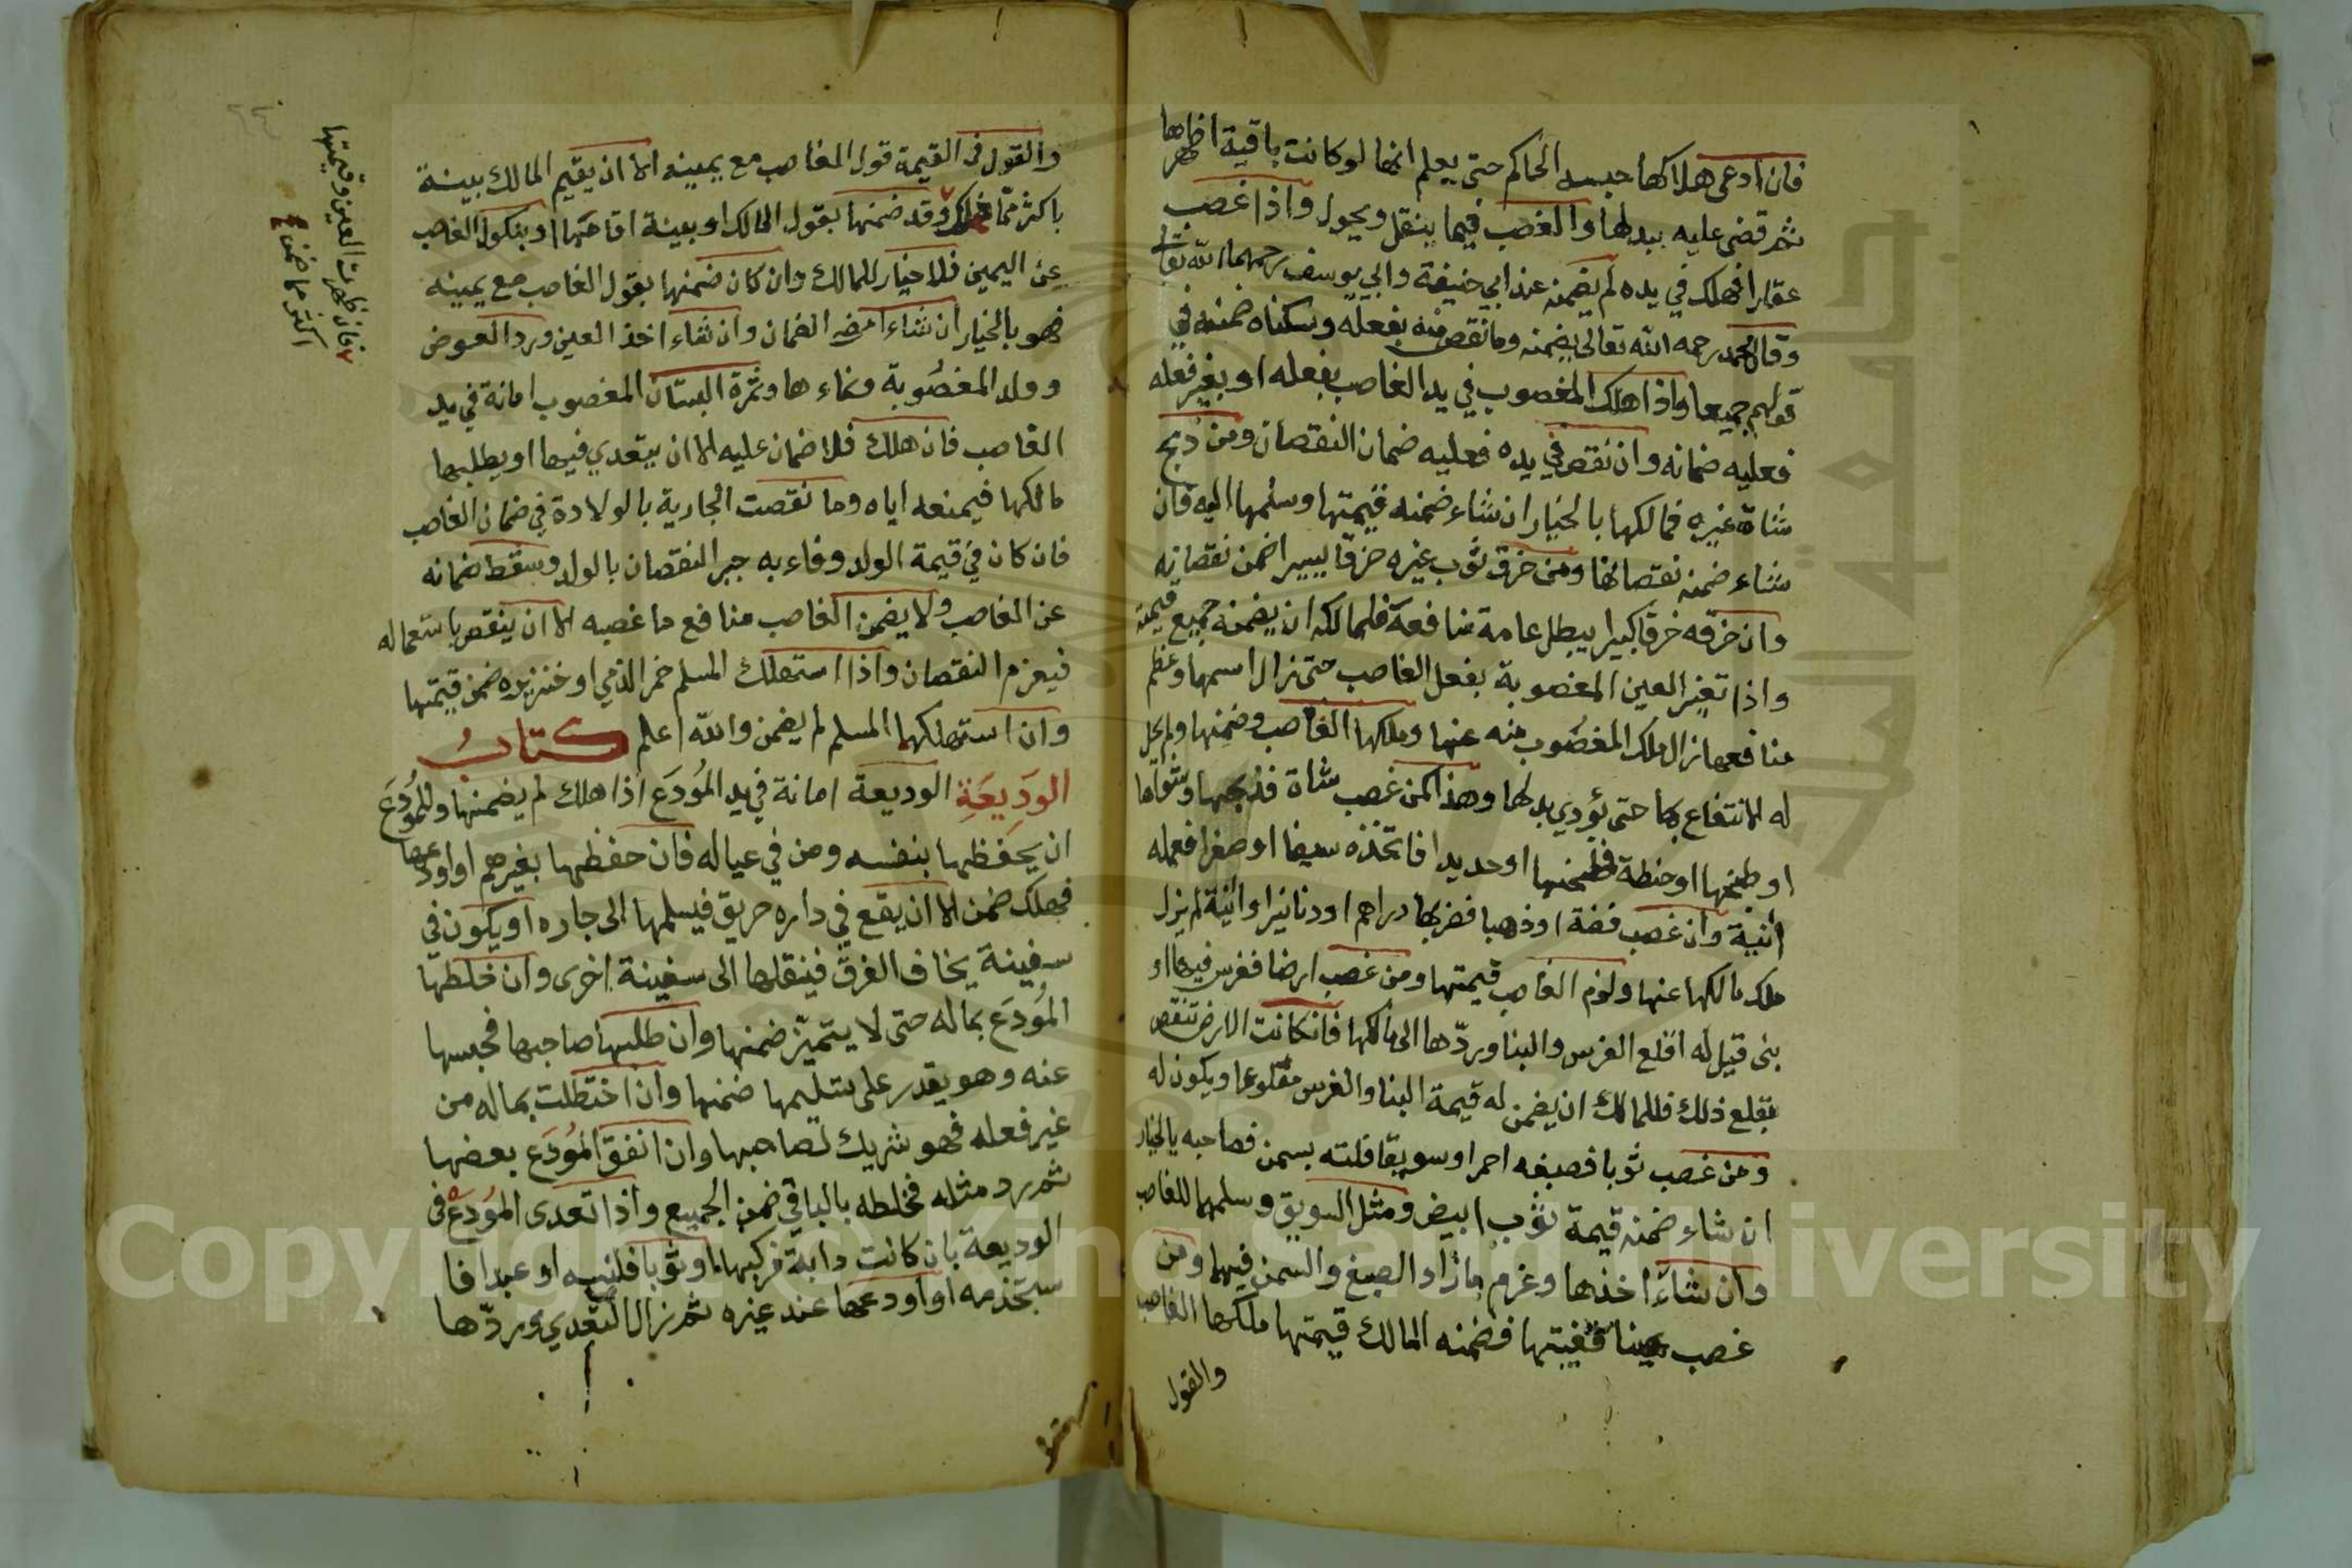 فان ادعى هلاكها حبسه الحاكم حتى يعلم انها لو كانت باقية اظهرها
ثم قضى عليه ببدلها والغصب فيما ينقل ويحول واذا غصب
عقارا فهلك في يده لم يضمنه عند ابي حنيفة وابي يوسف رحمهما الله تعالى
وقال محمد رحمه الله تعالى يضمنه وما نقص منه بفعله وسكناه ضمنه في
قولهم جميعا واذا هلك المغصوب في يد الغاصب بفعله او بغير فعله
فعليه ضمانه وان نقص في يده فعليه ضمان النقصان ومن ذبح
شاة غيره فمالكها بالخيار ان شاء ضمنه قيمتها وسلمها اليه فان
شاء ضمنه نقصانها ومن خرق ثوب غيره خرقا يسيرا ضمن نقصانه
وان خرقه خرقا كبيرا يبطل عامة منافعة فلمالكه ان يضمنه جميع قيمته
واذا تغير العين المغصوبة بفعل الغاصب حتى زال اسمها وعظم
منافعها زال ملك المغصوب منه عنها وملكها الغاصب وضمنها ولم يحل
له الانتفاع بها حتى يؤدي بدلها وهذا كمن غصب شاة فذبحها وشواها
او طبخها او حنطة فطحنها او حديدا فاتخذه سيفا او صفرا فعمله
انية وان غصب فضة او ذهبا فضربها دراهم او دنانيرا وانية لم يزل
ملك مالكها عنها ولزم الغاصب قيمتها ومن غصب ارضا فغرس فيها او
بنى قيل له اقلع الغرس والبنا وردّها الى مالكها فانكانت الارض تنقص
بقلع ذلك فللمالك ان يضمن له قيمة البنا والغرس مقلوعا ويكون له
ومن غصب ثوبا فصبغه احمر او سويقا فلته بسمن فصاحبه بالخيار
ان شاء ضمنه قيمة ثوب ابيض ومثل السويق وسلمهما للغاصب
وان شاء اخذها وغرم ما زاد الصبغ والسمن فيهما ومن
غصب عينا فغيبها فضمنه المالك قيمتها ملكها الغاصب
والقول
والقول في القيمة قول الغاصب مع يمينه الا ان يقيم المالك بينة
باكثر ممّا ذلك وقد ضمنها بقول المالك او ببينة اقامها او بنكول الغاصب
عن اليمين فلا خيار للمالك وان كان ضمنها بقول الغاصب مع يمينه
فهو بالخيار ان شاء امضى الضمان وان شاء اخذ العين ورد العوض
وولد المغصوبة ونماءها وثمرة البستان المغصوب امانة في يد
الغاصب فان هلك فلا ضمان عليه الا ان يتعدي فيها او يطلبها
مالكها فيمنعه اياه وما نقصت الجارية بالولادة في ضمان الغاصب
فان كان في قيمة الولد وفاء به جبر النقصان بالولد وسقط ضمانه
عن الغاصب ولا يضمن الغاصب منافع ما غصبه الا ان ينقص باستعماله
فيغرم النقصان واذا استهلك المسلم خمر الذمي او خنزيره ضمن قيمتها
وان استهلكهما المسلم لم يضمن والله اعلم كتابُ
الوَدِيعَةِ الوديعة امانة في يد المُودَع اذا هلك لم يضمنها وللمُودَع
ان يحفظها بنفسه ومن في عياله فان حفظها بغيرهم او اودعها
فهلك ضمن الا ان يقع في داره حريق فيسلمها الى جاره او يكون في
سفينة يخاف الغرق فينقلها الى سفينة اخرى وان خلطها
المُودَع بماله حتى لا يتميّز ضمنها وان طلبها صاحبها فحبسها
عنه وهو يقدر على تسليمها ضمنها وان اختلطت بماله من
غير فعله فهو شريك لصاحبها وان انفق المُودَع بعضها
ثم رد مثله فخلطه بالباقي ضمن الجميع واذا تعدى المُودَع في
الوديعة بان كانت دابة فركبها او ثوبا فلبسه او عبدا فا
ستخدمه او اودعها عند غيره ثم زال التعدي وردّها
فان ظهرت العين وقيمتها
اكثر مما ضمن
Copyright © King Saud University